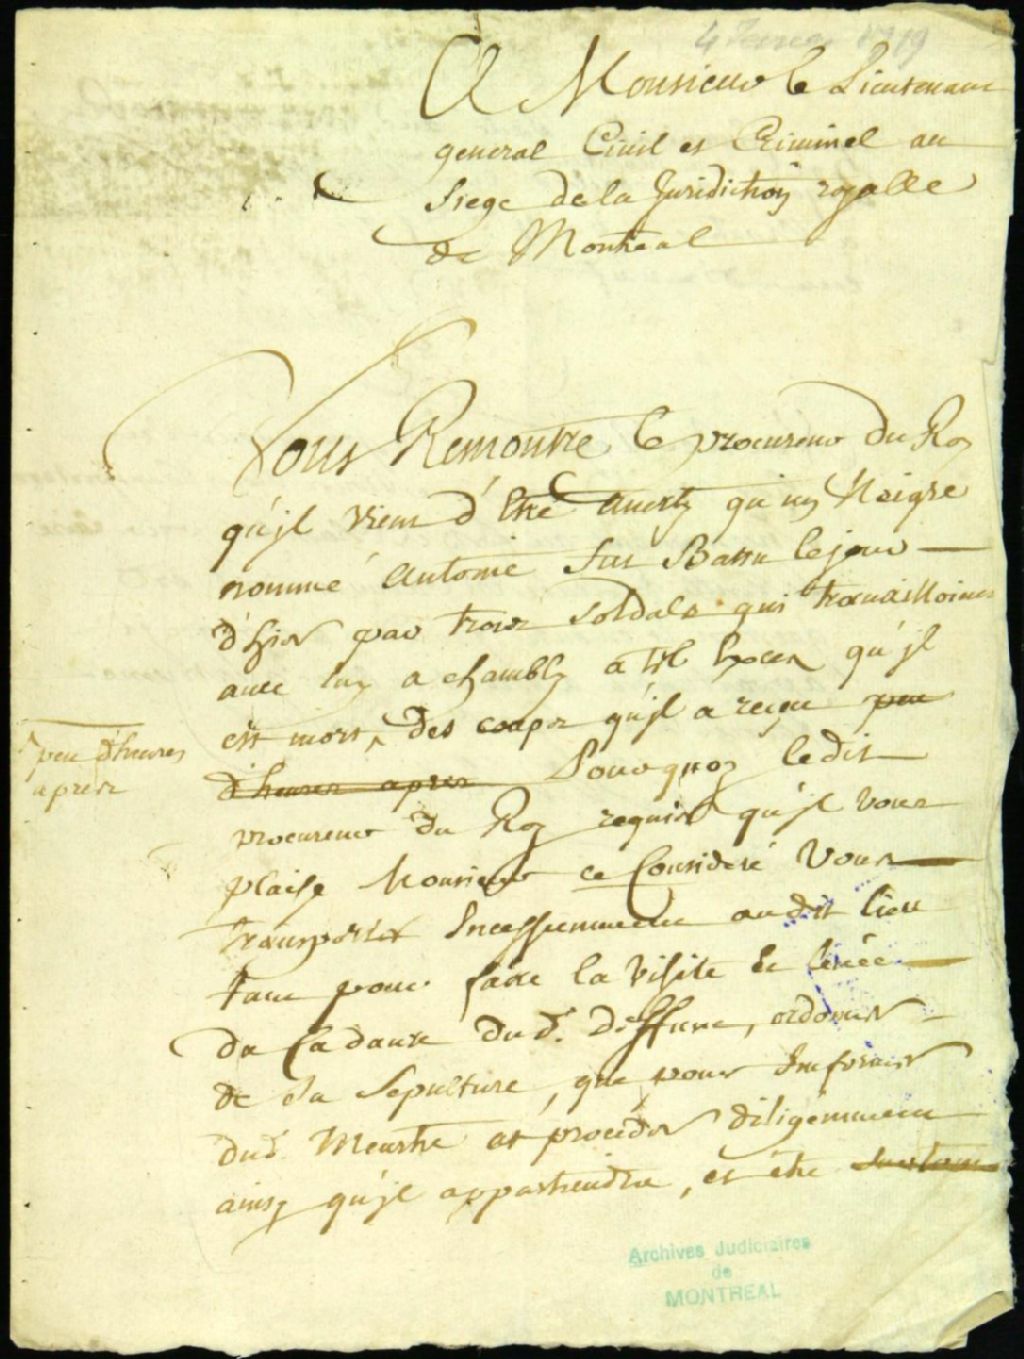 4 février 1719
A Monsieur le Lieutenant
general Civil et Criminel au
siege de la Juridiction royalle
de Montreal
Vous Remontre le procureur du Roy
qu'jl vient d'Etre Averty qu'un Naigre
nommé Antoine fut Battu le jour
d'hier par trois soldats qui travailloient
avec luy a chambly a tel Excez qu'jl
est mort ^ des coups qu'jl a reçu peu
d'heures apres Pourquoy ledit
^ peu d'heures
apres
procureur du Roy requiert qu'jl vous
plaise Monsieur ce Consideré Vous
transporter Incessamment audit lieu
tant pour faire la visite et levée
du Cadavre du d. deffunt, ordonner
de sa sepulture, que pour Informer
dud. Meurtre et proceder diligemment
ainsy qu'jl appartiendra, et être
Archives Judiciaires
de
MONTREAL